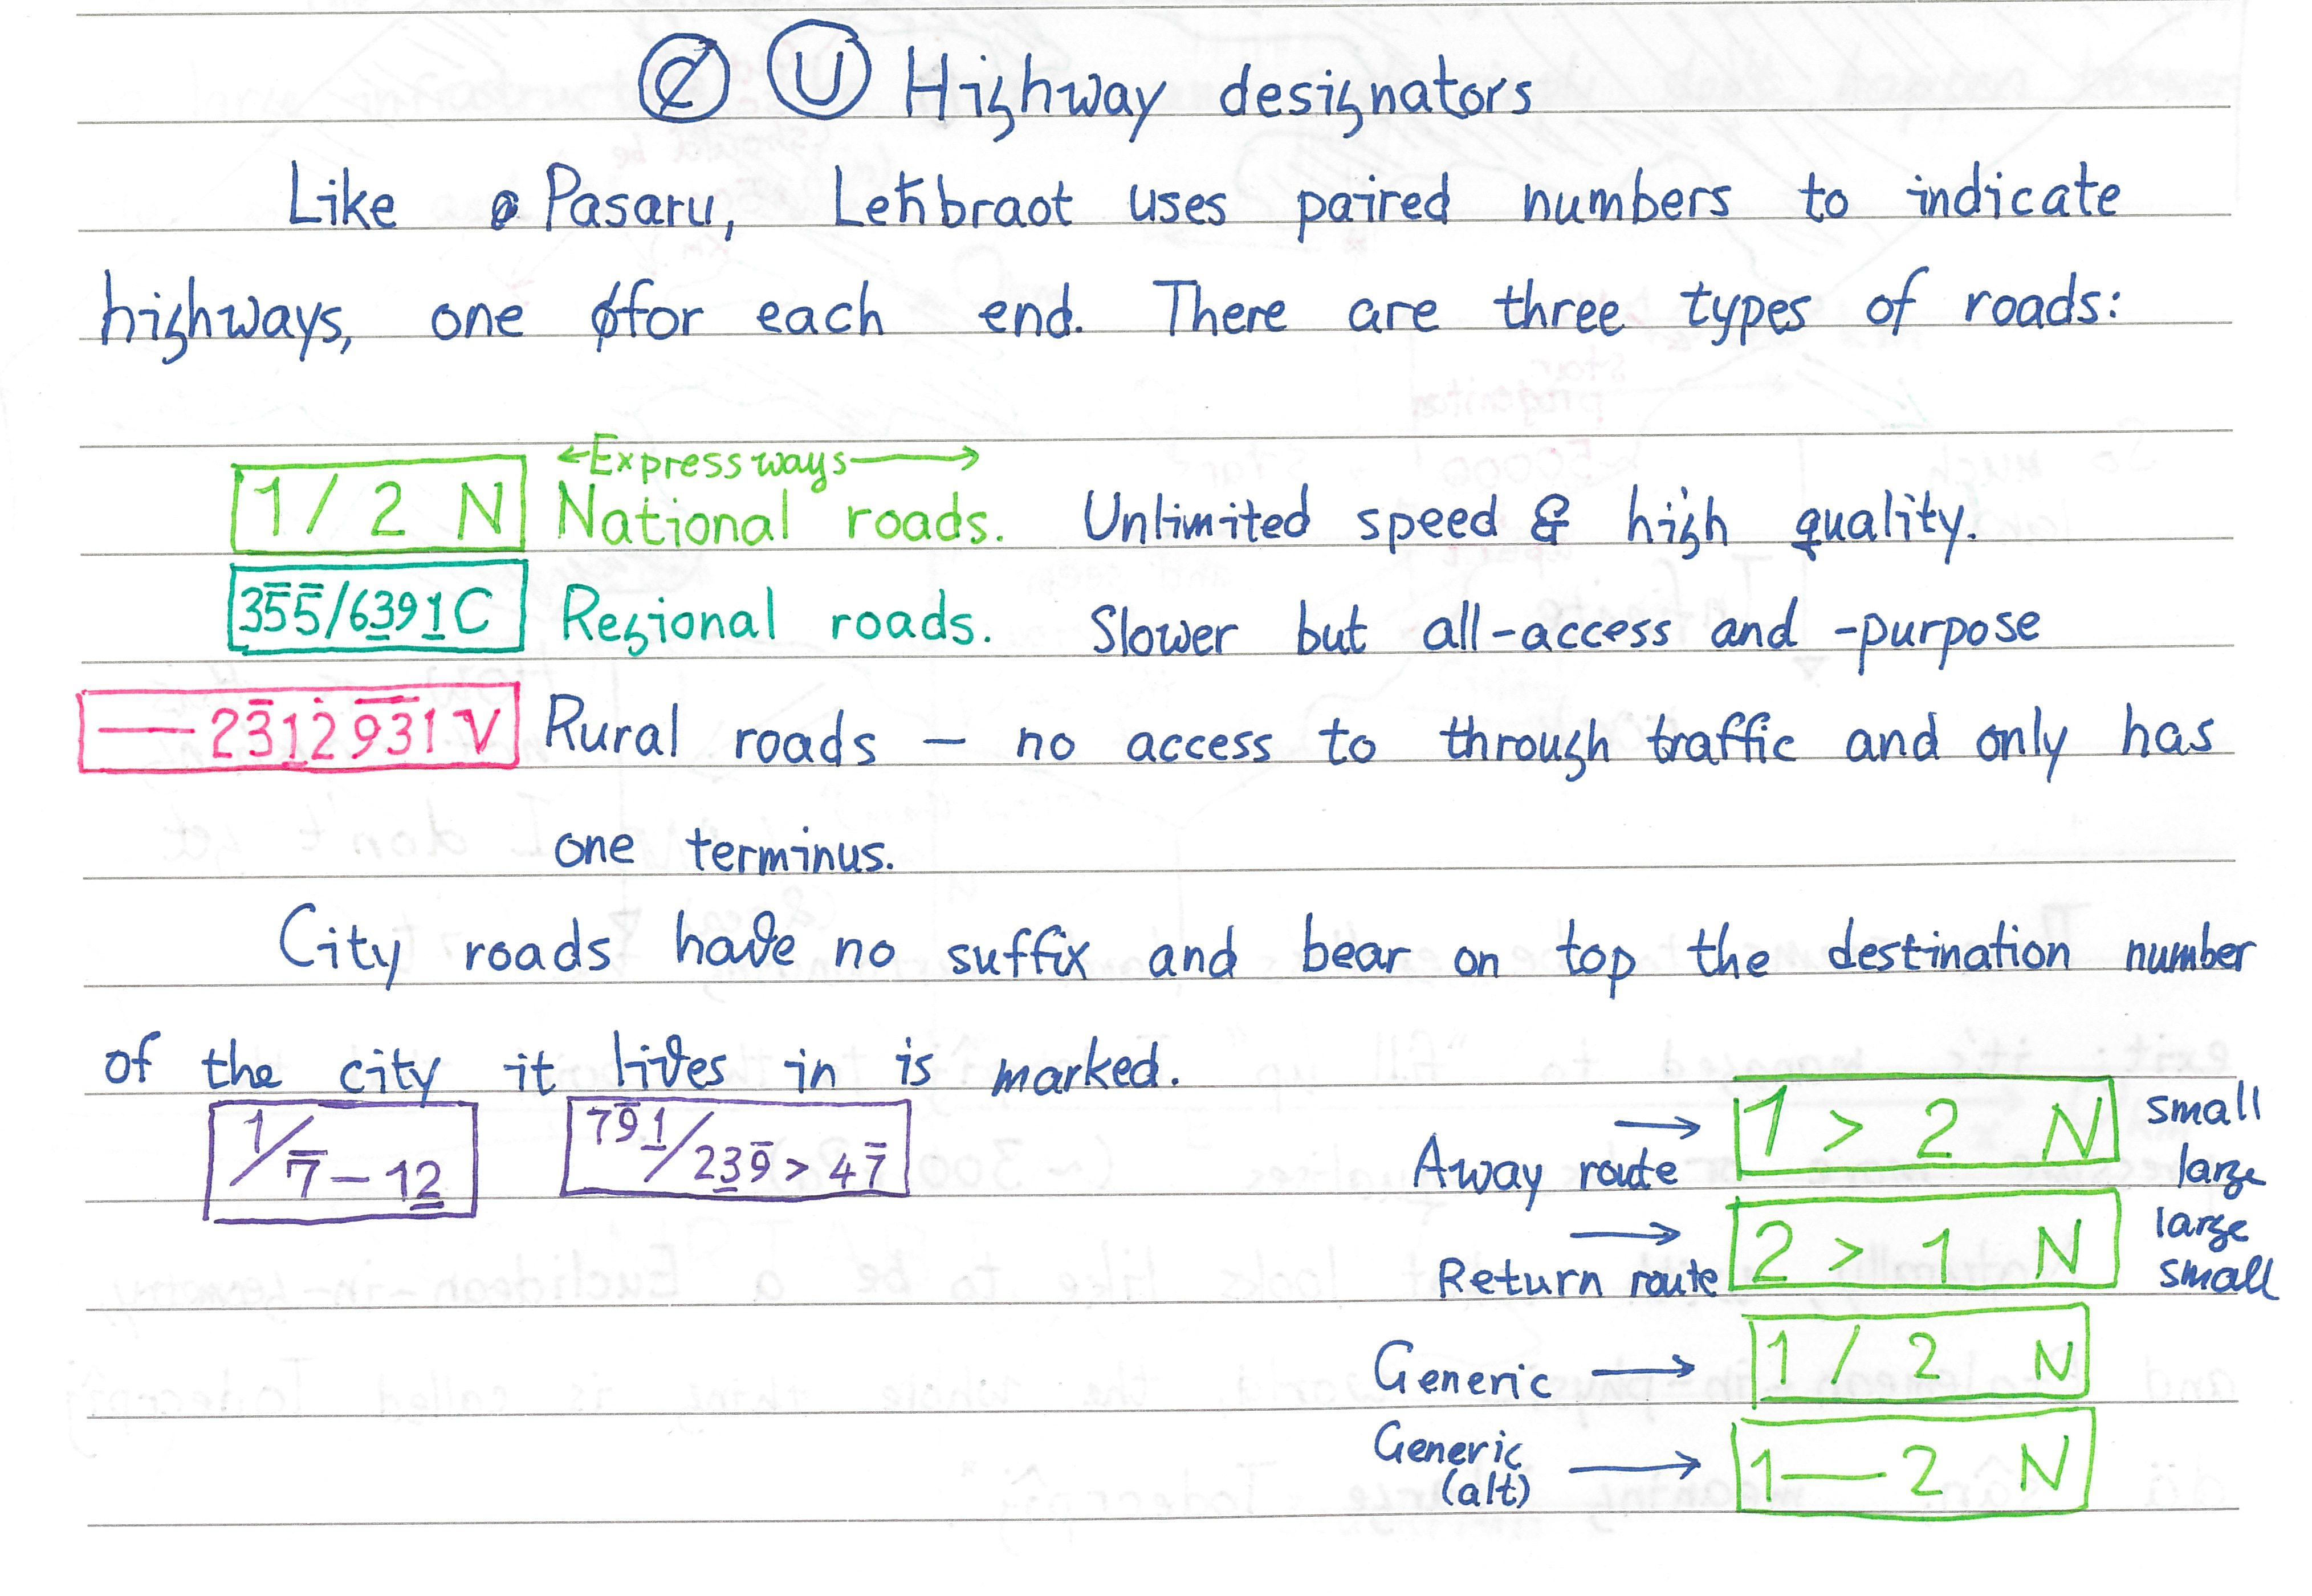 ₡ U Highway designators
Like Pasaru, Leħbraot uses paired numbers to indicate
highways, one for each end. There are three types of roads:
←Expressways→
1 / 2 N National roads. Unlimited speed & high quality.
35̅5̅/63̲91̲C Regional roads. Slower but all-access and -purpose
—23̅1̲2̇9̅3̅1V Rural roads – no access to through traffic and only has
one terminus.
City roads have no suffix and bear on top the destination number
of the city it lives in is marked.
1/7̅–12̲ 79̅1̲/23̲9̅>47̅
Away route → 1 > 2 N small large
Return route → 2 > 1 N large small
Generic → 1 / 2 N
Generic (alt) → 1—2 N